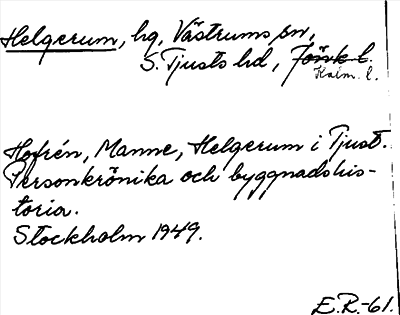 Helgerum, hg, Västrums sn,
S. Tjusts hd, Jönk l.
Kalm. l.
Hofrén, Manne, Helgerum i Tjust.
Personkrönika och byggnadshis-
toria.
Stockholm 1949.
E.R.-61.